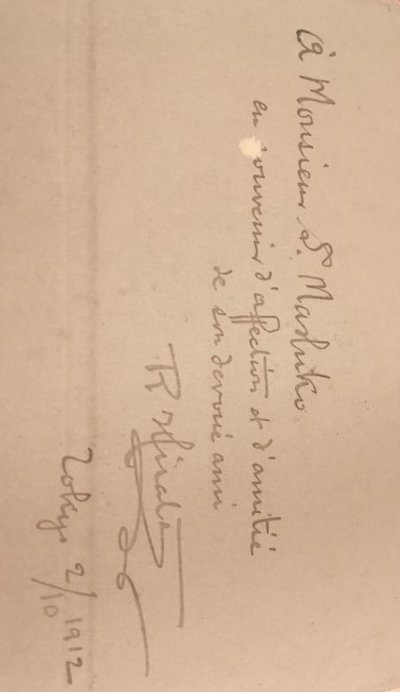 à Monsieur S. Mashuko
en souvenir d'affection et d'amitié
de son devoué ami
R
Tokyo 2/10 1912